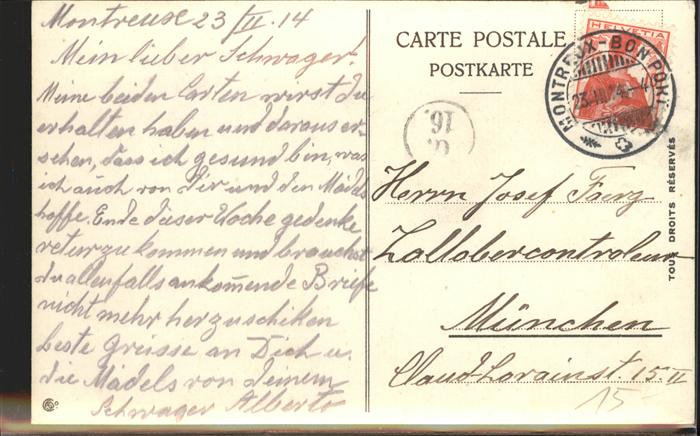 Montreuse 23/III. 14
Mein lieber Schwager!
Meine beiden Carten wirst du
erhalten haben und daraus er-
sehen, dass ich gesund bin, was
ich auch von Dir und den Mädels
hoffe. Ende dieser Woche gedenke
retur zu kommen und brauchst
du allenfalls ankom̅ende Briefe
nicht mehr herzuschiken
beste grüsse an Dich u.
die Mädels von deinem
Schwager Alberto
CARTE POSTALE
POSTKARTE
HELVETIA
MONTREUX-BON PORT
23.III.14.-4
16.
Herrn Josef
Zollobercontroleur
München
Claud-Lorainst. 15 II
15-
TOUS DROITS RÉSERVÉS